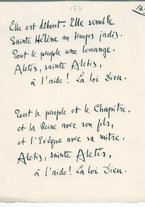 153
Elle est debout. Elle semble
Sainte Hélène au temps jadis.
Tout le peuple une louange.
Alelis, sainte Alelis,
à l'aide! La loi Dieu.
Tout le peuple et le Chapitre,
et la Reine avec son fils,
et l'Evêque avec sa mitre.
Alelis, sainte Alelis,
à l'aide! La loi Dieu.